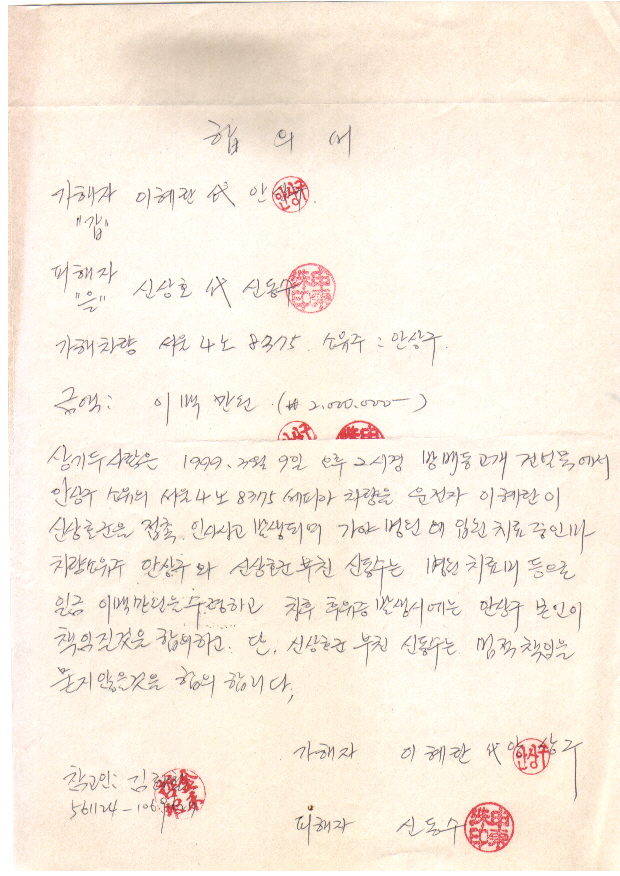 합의서
가해자 이혜란 代 안상구
"갑"
피해자
"을" 신상호 代 신동수
가해차량 서울4노 8375. 소유주 : 안상구.
금액: 이백만원. (₩ 2.000.000-)
상기 두사람은 1999. 3월 9일 오후 2시경 방배동고개 건널목에서
안상구 소유의 서울4노 8375 세피아 차량을 운전자 이혜란이
신상호군을 접촉 인사사고 발생되어 가야병원에 입원 치료중인바
차량소유주 안상구와 신상호군 부친 신동수는 병원 치료비 등으로
일금 이백만원을 수령하고 향후 후유증 발생시에는 안상구 본인이
책임질것을 합의하고. 단, 신상호군 부친 신동수는 법적 책임을
묻지 않을것을 합의 합니다,
가해자 이혜란 代 안상구
참고인: 김
561124-106
피해자 신동수